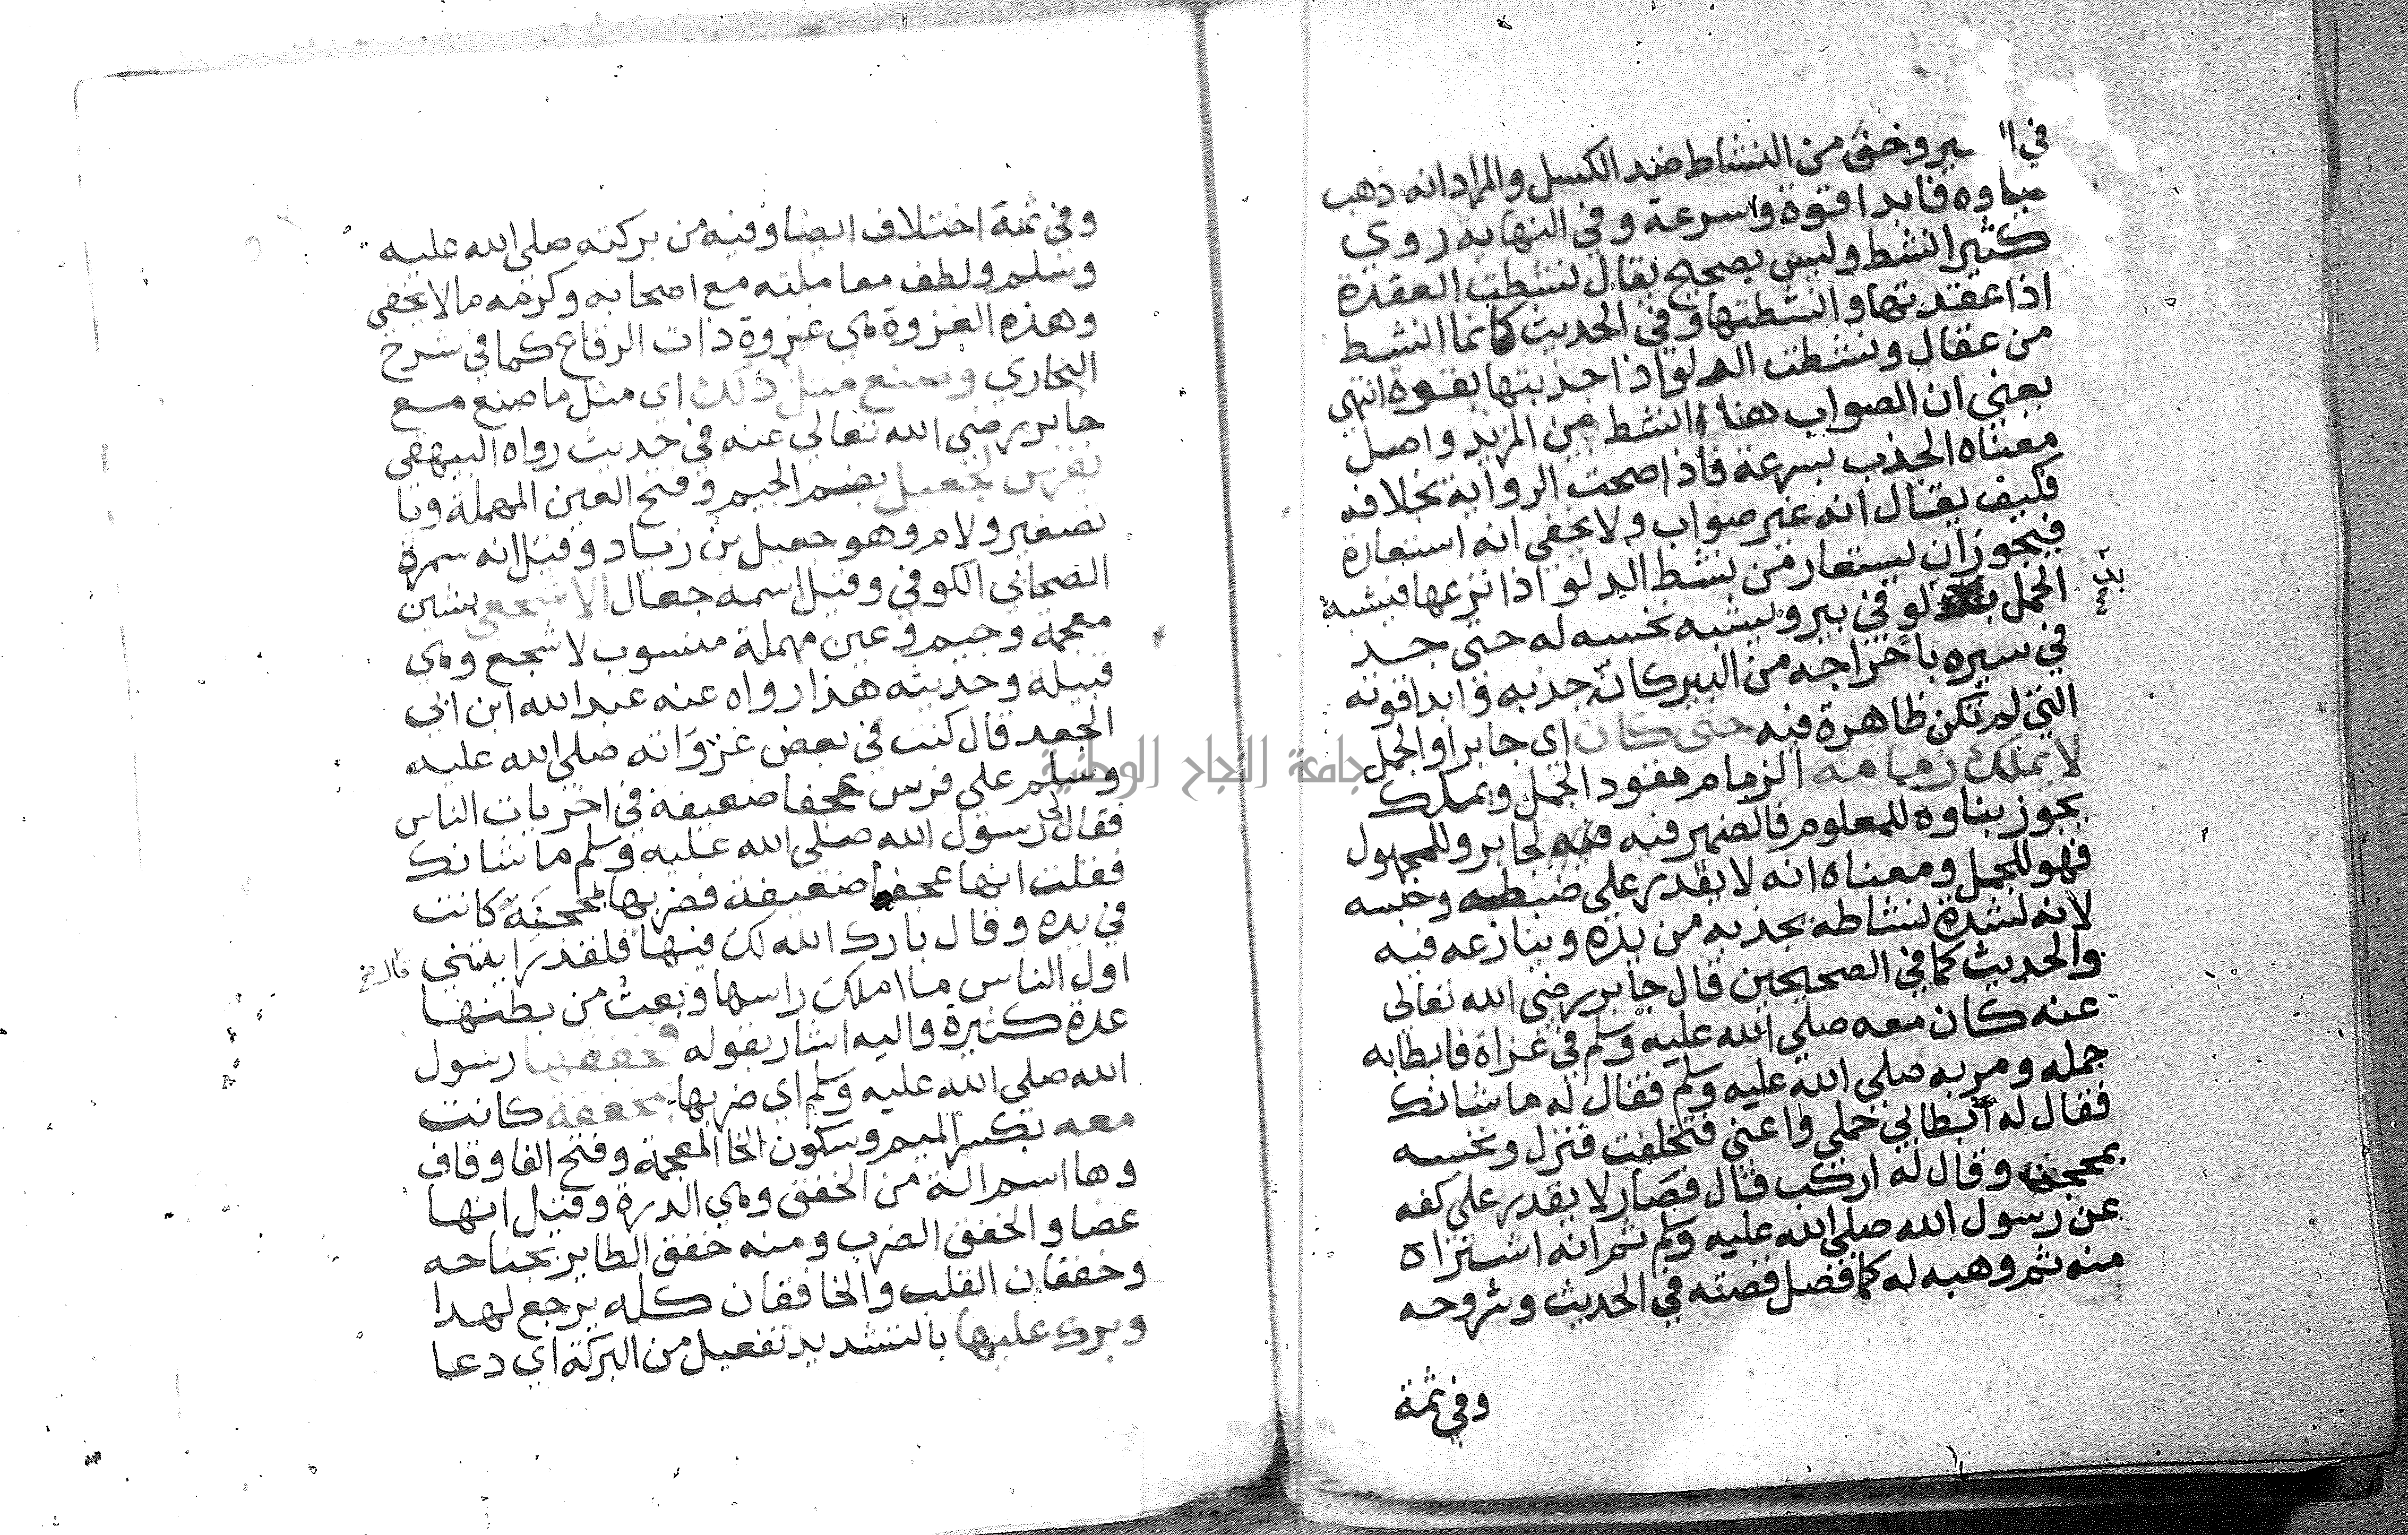 في السير وخف من النشاط ضد الكسل والمراد انه ذهب
عياوه فابدا قوة وسرعة وفي النهاية روي
كثيرا نشط وليس بصحيح يقال نشطت العقدة
اذا عقدتها وانشطتها وفي الحديث كانما انشط
من عقال ونشطت الدلو اذا جذبتها بقوة انتهى
يعني ان الصواب هنا انشط من المزيد واصل
معناه الجذب بسرعة فاذا صحت الرواية بخلافه
فكيف يقال انه غير صواب ولا يخفى انه استعارة
فيجوز ان يستعار من نشط الدلو اذا نزعها فيشبه
الجمل بدلو في بير ويشبه نخسه له حتى جد
في سيره باخراجه من البير كانّ جذبه وابدا قوته
التي لم تكن ظاهرة فيه حتى كان اي جابر او الجمل
لا يملك زمامه الزمام مقود الجمل ويملك
يجوز بناوه للمعلوم فالضمير فيه لجابر وللمجهول
فهو للجمل ومعناه انه لا يقدر على ضبطه وحبسه
لانه لشدة نشاطه يجذبه من يده وينازعه فيه
والحديث كما في الصحيحين قال جابر رضي الله تعالى
عنه كان معه صلى الله عليه وسلم في غزاة فابطا به
جمله ومر به صلى الله عليه وسلم فقال له ما شانك
فقال له ابطا بي جملي واعني فتخلفت فنزل ونخسه
بمحجن وقال له اركب قال فصار لا يقدر على كفه
عن رسول الله صلى الله عليه وسلم ثم انه اشتراه
منه ثم وهبه له كما فصل قصته في الحديث وشروحه
وفي ثمة
وفي ثمة اختلاف ايضا وفيه من بركته صلى الله عليه
وسلم ولطف معاملته مع اصحابه وكرمه ما لا يخفى
وهذه الغزوة هى غزوة ذات الرقاع كما في شرح
البخاري وصنع مثل ذلك اى مثل ما صنع مع
جابر رضى الله تعالى عنه في حديث رواه البيهقي
بفرس لجعيل بضم الجيم وفتح العين المهملة ويا
تصغير ولام وهو جعيل بن زياد وقيل انه سمرة
الصحابي الكوفي وقيل اسمه جعال الاشجعي بشين
معجمة وجيم وعين مهملة منسوب لاشجع وهى
قبيله وحديثه هذا رواه عنه عبد الله ابن ابي
الجعد قال كنت في بعض غزواته صلى الله عليه
وسلم على فرس عجفا ضعيفة في اخريات الناس
فقال لى رسول الله صلى الله عليه وسلم ما شانك
فقلت انها عجفا ضعيفة فضربها بمحجنة كانت
في يده وقال بارك الله لك فيها فلقد رايتني
قال
اول الناس ما املك راسها وبعتُ من بطنها
عدة كثيرة واليه اشار بقوله فخفقها رسول
الله صلى الله عليه وسلم اي ضربها بمخفقة كانت
معه بكسر الميم وسكون الخا المعجمة وفتح الفا وقاف
وها اسم الة من الخفق وهي الدرة وقيل انها
عصا والخفق الضرب ومنه خفق الطاير بجناحه
وخفقان القلب والخافقان كله يرجع لهدا
وبرك عليها بالتشديد تفعيل من البركة اي دعا
جامعة النجاح الوطنية